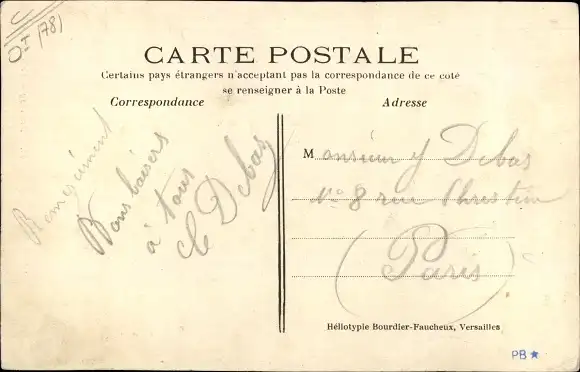 OI (78)
CARTE POSTALE
Certains pays étrangers n'acceptant pas la correspondance de ce coté
se renseigner à la Poste
Correspondance
Adresse
Bons baisers
à tous
Debas
Monsieur Y Debas
N° 8 rue Chrestien
(Paris)
Héliotypie Bourdier-Faucheux, Versailles
PB★